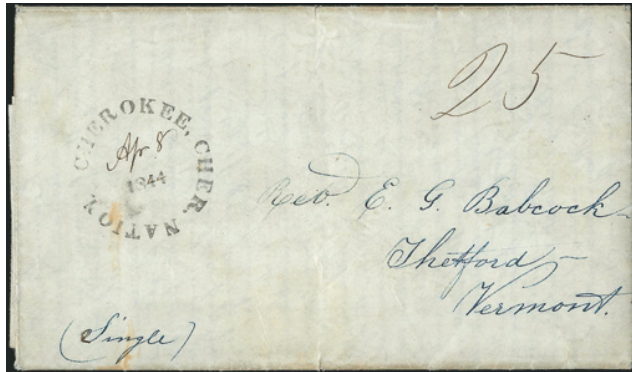 25
CHEROKEE, CHER. NATION.
Ap. 8
1844
Rev. E. G. Babcock
Thetford
Vermont.
(Single)